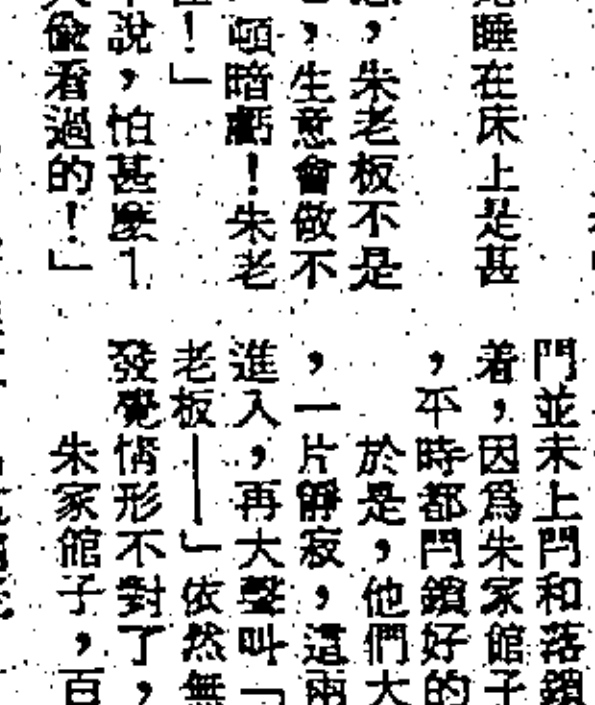 睡在床上是甚
，朱老板不是
，生意會做不
頓暗虧！朱老
！」
說，怕甚麼！
偷看過的！」
門並未上閂和落鎖
着，因爲朱家館子
，平時都閂鎖好的
於是，他們大
，一片靜寂，這兩
進入，再大聲叫「
老板——」依然無
發覺情形不對了，
朱家館子，百